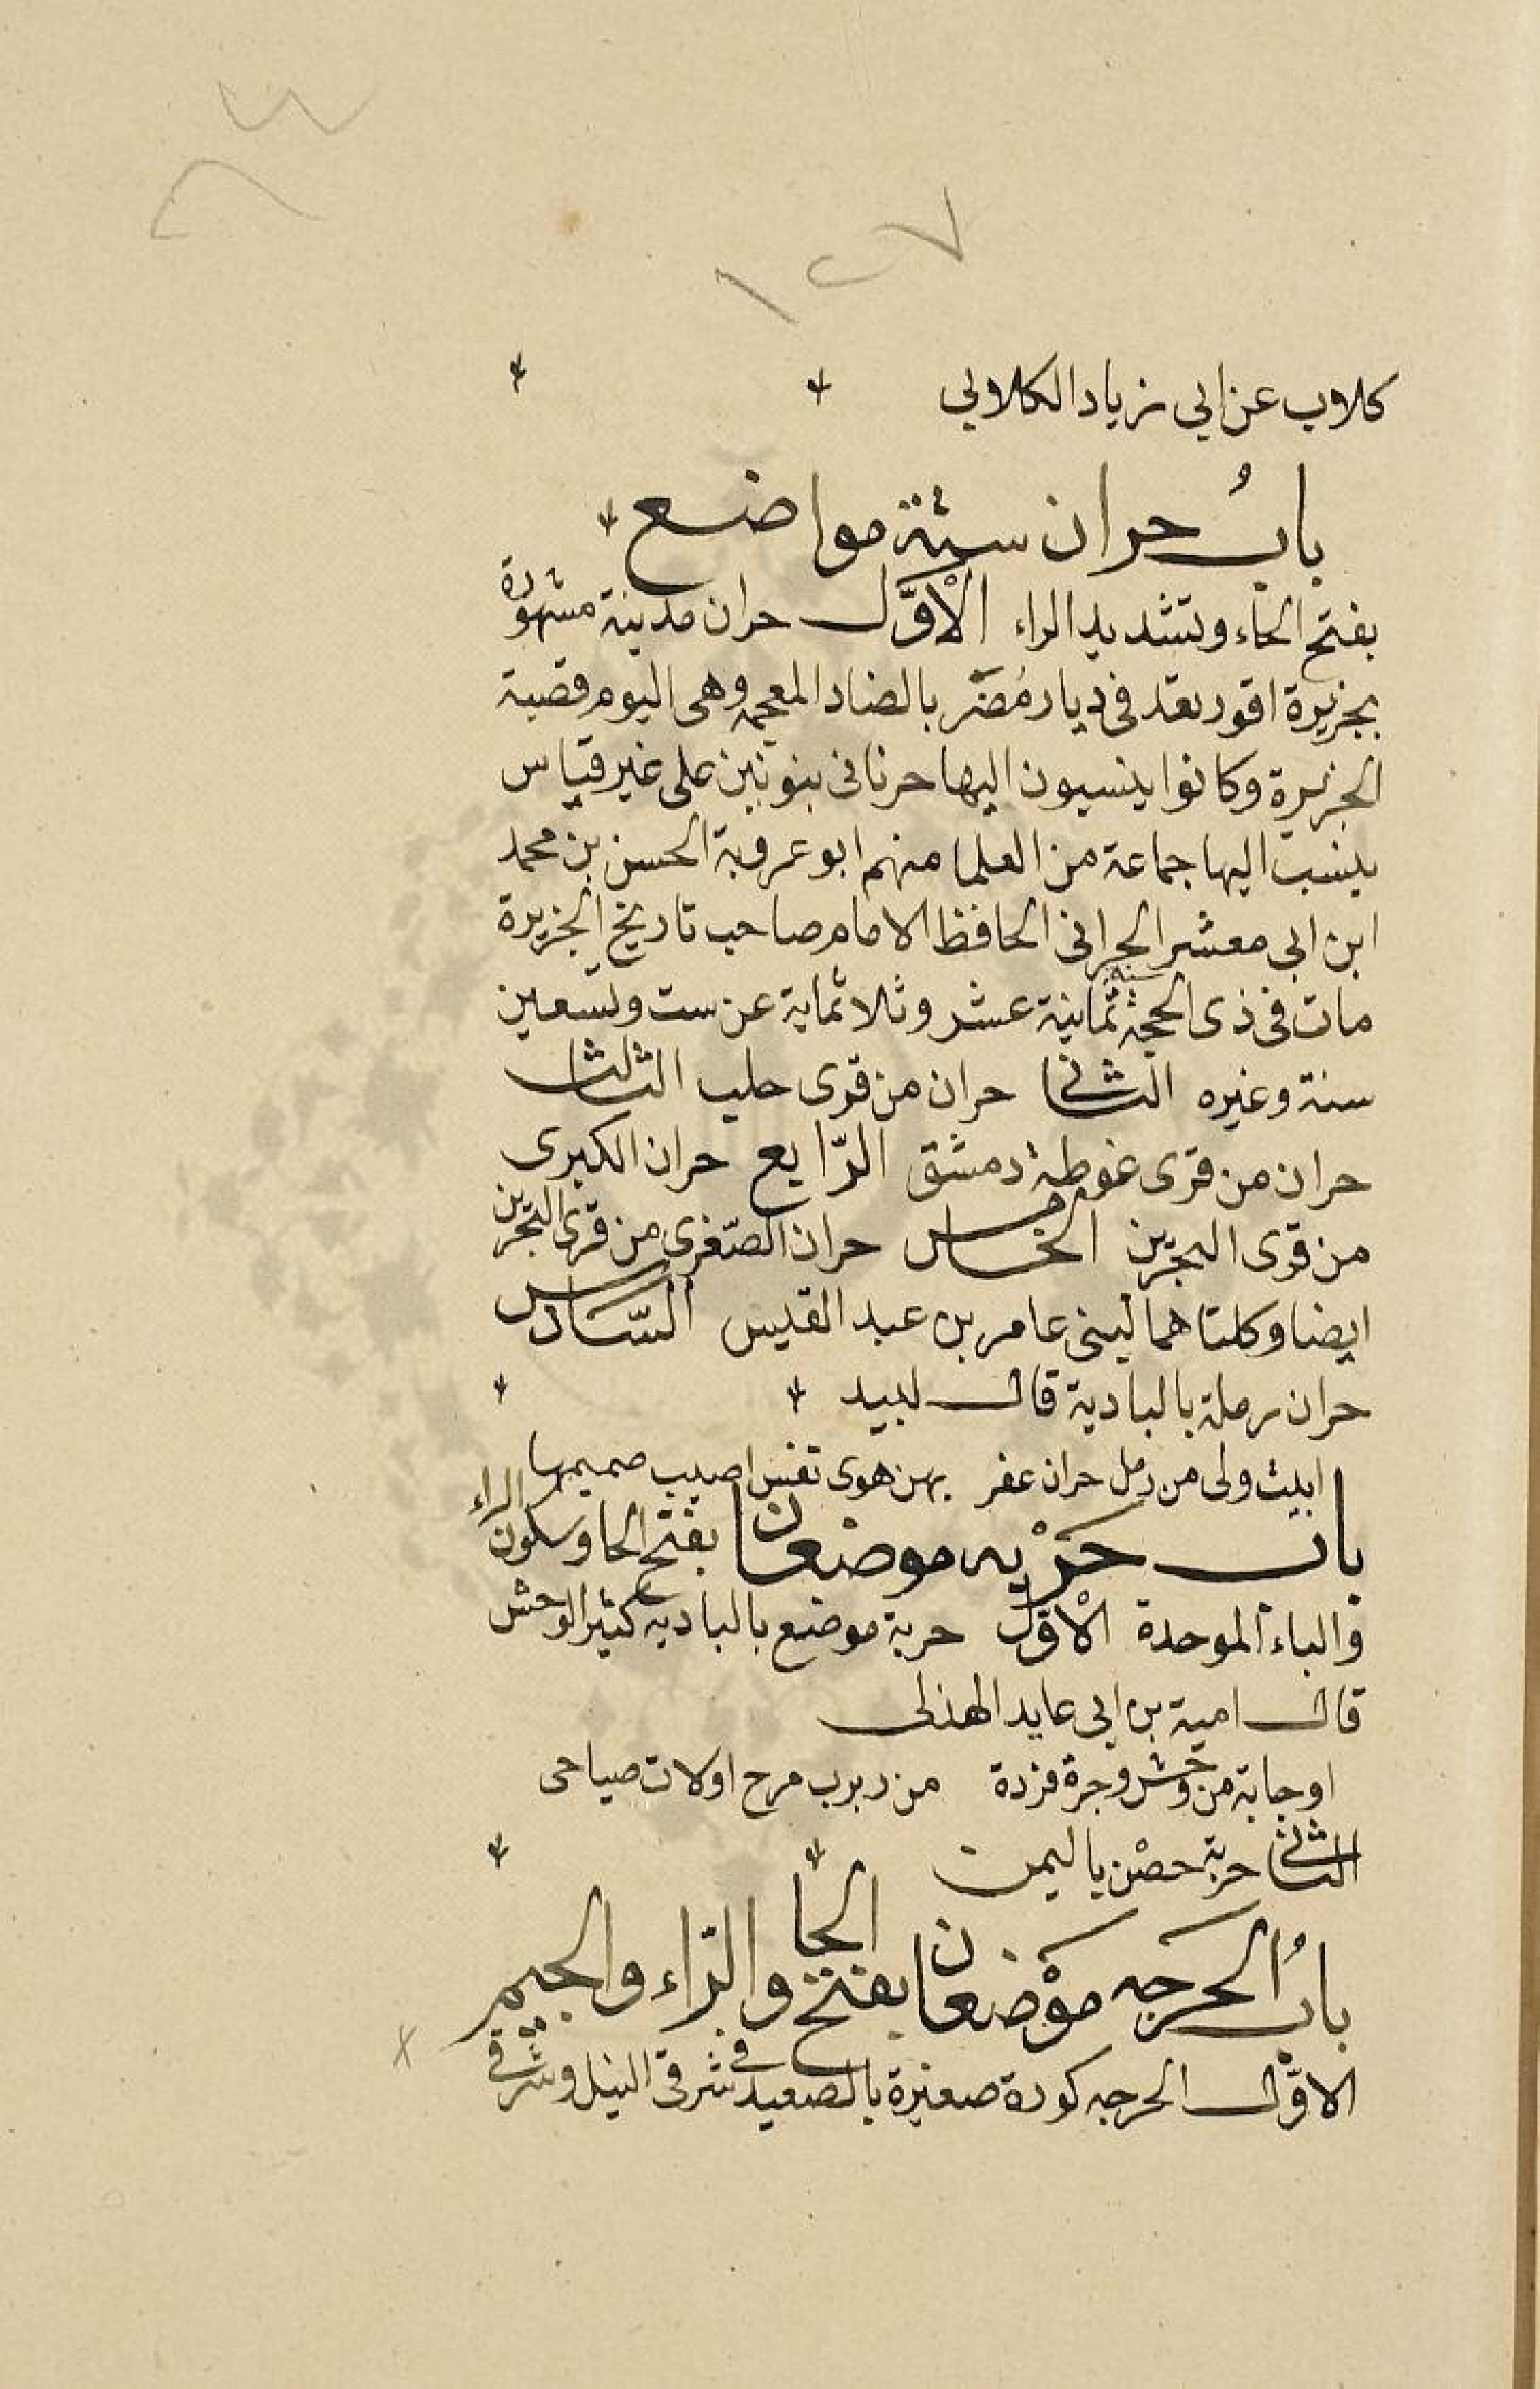 ١٢٧
كلاب عن ابي زياد الكلابي
بابُ حران ستة مواضع
بفتح الحاء وتشديد الراء الأوَّل حران مدينة مشهورة
بجزيرة اقور تعد في ديار مُضَر بالضاد المعجمه وهى اليوم قصبة
الجزيرة وكانوا ينسبون اليها حرنانى بنونين على غير قياس
ينسب اليها جماعة من العلما منهم ابو عروبة الحسن بن محمد
ابن ابي معشر الحرانى الحافظ الامام صاحب تاريخ الجزيرة
مات فى ذى الحجة سنة ثمانية عشر وثلاثماية عن ست وتسعين
سنة وغيره الثانى حران من قرى حلب الثالث
حران من قرى غوطة دمشق الرّابع حران الكبرى
من قرى البحرين الخامس حران الصّغرى من قرى البحرين
ايضا وكلتاهما لبنى عامر بن عبد القيس السّادس
حران رملة بالبادية قال لبيد
ابيت ولى من رمل حران عفر بهن هوى نفس اصيب صميمها
باب حَرْبه موضعان بفتح الحا وسكون الراء
والباء الموحدة الأوّل حربة موضع بالباديه كثير الوحش
قال امية بن ابي عايد الهذلى
او جابة من وحش وجرة فردة من ربرب مرح اولات صياحى
الثانى حربة حصن باليمن
بابُ الحَرَجه مَوْضعان بفتح الحا والرّاء والجيم
الاوّل الحرجه كورة صغيرة بالصعيد في شرقى النيل وشرقي